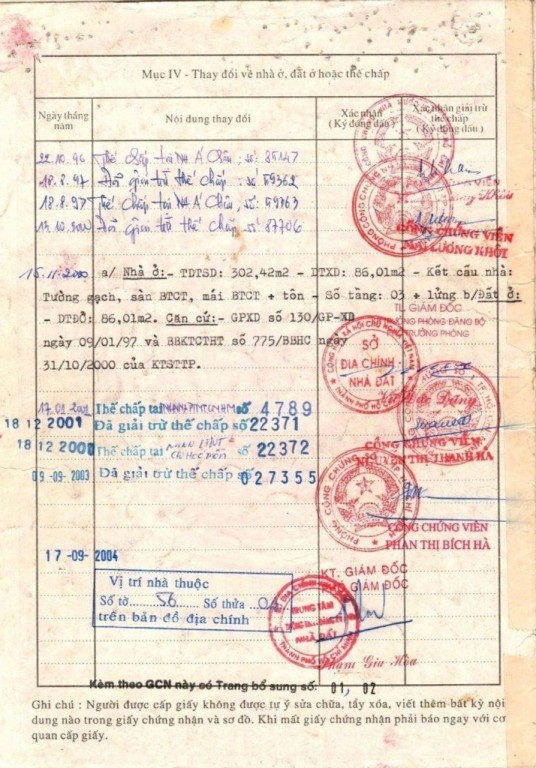 Mục IV - Thay đổi về nhà ở, đất ở hoặc thế chấp
Ngày tháng năm
Nội dung thay đổi
Xác nhận (Ký đóng dấu)
Xác nhận giải trừ thế chấp (Ký đóng dấu)
22.10.96 Thế chấp tại NH Á Châu, số: 85147
18.8.97 Đã giải trừ thế chấp, số 59362
18.8.97 Thế chấp tại NH Á Châu, số 59363
Đã giải trừ thế chấp, số 67706
CÔNG CHỨNG VIÊN
15.11.2000 a/ Nhà ở:- TDTSD: 302,42m2 - DTXD: 86,01m2 - Kết cấu nhà:
Tường gạch, sàn BTCT, mái BTCT + tôn - Số tầng: 03 + lửng b/Đất ở:
- DTĐỞ: 86,01m2. Căn cứ:- GPXD số 130/GP-XD
ngày 09/01/97 và BBKTCTHT số 775/BBHC ngày
31/10/2000 của KTSTTP.
TL. GIÁM ĐỐC
TRƯỞNG PHÒNG ĐĂNG BỘ
SỞ
ĐỊA CHÍNH -
NHÀ ĐẤT
17.01.2001 Thế chấp tại số 4789
18 12 2001 Đã giải trừ thế chấp số 22371
Thế chấp tại số 22372
09 -09- 2003 Đã giải trừ thế chấp số 027355
CÔNG CHỨNG VIÊN
NGUYỄN THỊ THANH HÀ
CÔNG CHỨNG VIÊN
PHAN THỊ BÍCH HÀ
17 -09- 2004
Vị trí nhà thuộc
Số tờ 56 Số thửa
trên bản đồ địa chính
KT. GIÁM ĐỐC
PHÓ GIÁM ĐỐC
TRUNG TÂM
NHÀ ĐẤT
Phạm Gia Hòa
Kèm theo GCN này có Trang bổ sung số: 01, 02
Ghi chú : Người được cấp giấy không được tự ý sửa chữa, tẩy xóa, viết thêm bất kỳ nội
dung nào trong giấy chứng nhận và sơ đồ. Khi mất giấy chứng nhận phải báo ngay với cơ
quan cấp giấy.